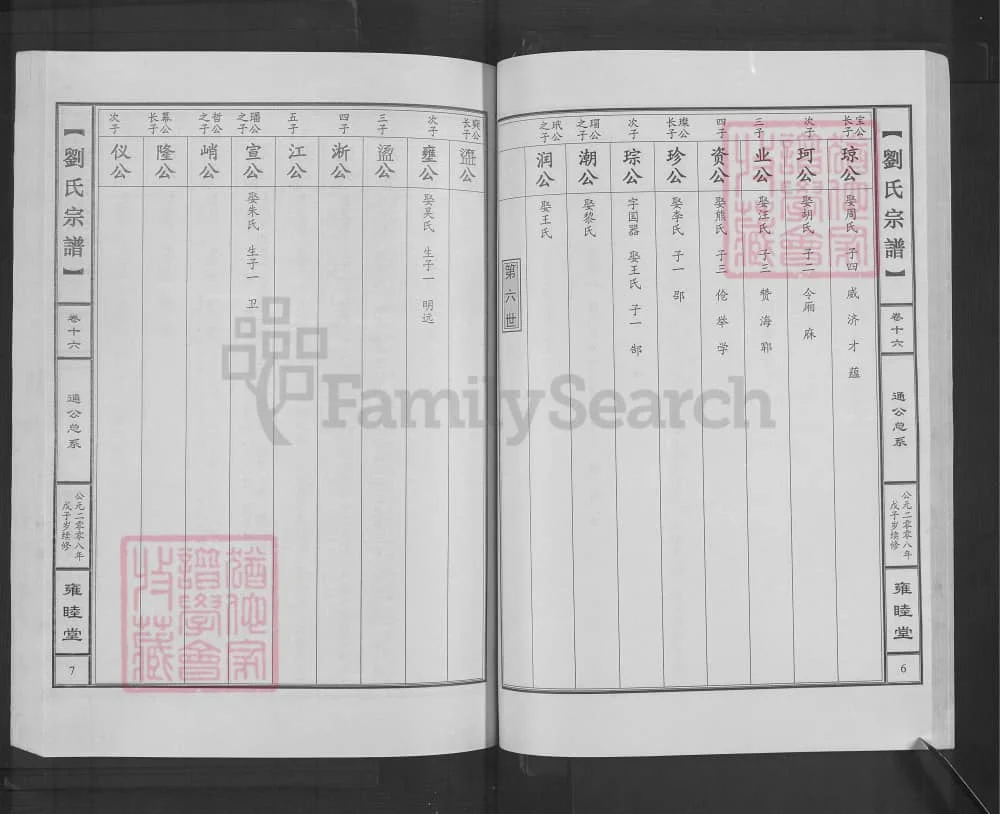 【劉氏宗譜】
卷十六
通公总系
公元二零零八年
戊子岁续修
雍睦堂
6
宝公长子
琼公
娶周氏 子四 威 济 才 蕴
次子
珂公
娶胡氏 子二 令厢 庥
三子
业公
娶汪氏 子三 赞 海 郓
四子
资公
娶熊氏 子三 伦 举 学
璨公长子
珍公
娶李氏 子一 邵
次子
琮公
字国器 娶王氏 子一 郜
瑁公之子
潮公
娶黎氏
玳公之子
润公
娶王氏
第六世
长子
次子
壅公
娶吴氏 生子一 明远
三子
四子
淅公
五子
江公
璠公之子
宣公
娶朱氏 生子一 卫
哲公之子
峭公
幕公长子
隆公
次子
仪公
【劉氏宗譜】
卷十六
通公总系
公元二零零八年
戊子岁续修
雍睦堂
7
FamilySearch